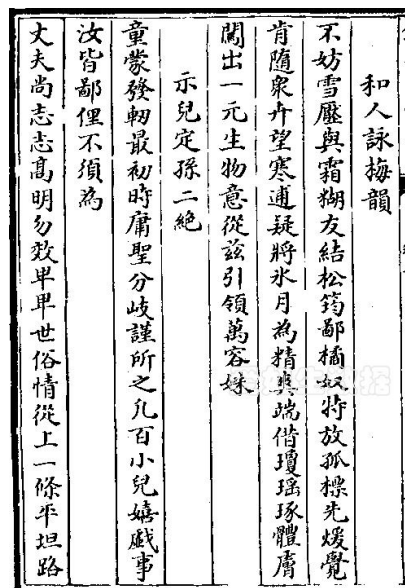 和人詠梅韻
不妨雪壓與霜糊友結松筠鄙橘奴特放孤標先煖覺
肯隨衆卉望寒逋疑將氷月為精爽端借瓊瑶琢體膚
闖出一元生物意從兹引領萬容姝
示兒定孫二絶
童蒙發軔最初時庸聖分岐謹所之凡百小兒嬉戯事
汝皆鄙俚不須為
丈夫尚志志髙明勿效卑卑世俗情從上一條平坦路